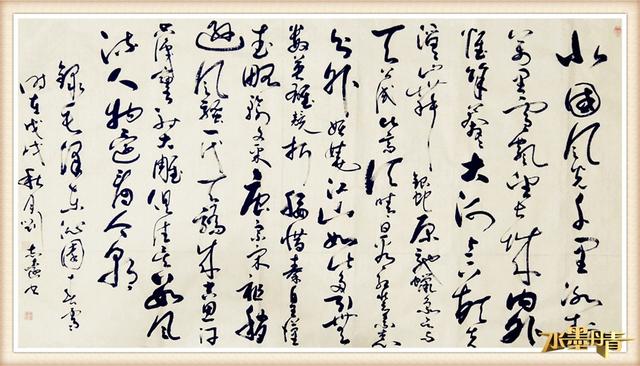 北国风光千里冰封
万里雪飘望长城内外
惟余莽莽大河上下顿失
滔滔山舞银蛇原驰蜡象欲与
天公试比高须晴日看红装素裹
分外妖娆江山如此多娇引无
数英雄竞折腰惜秦皇汉
武略输文采唐宗宋祖稍
逊风骚一代天骄成吉思汗
只识弯弓射大雕俱往矣数风
流人物还看今朝
录毛泽东沁园春雪
时在戊戌秋月刘志书
水墨丹青